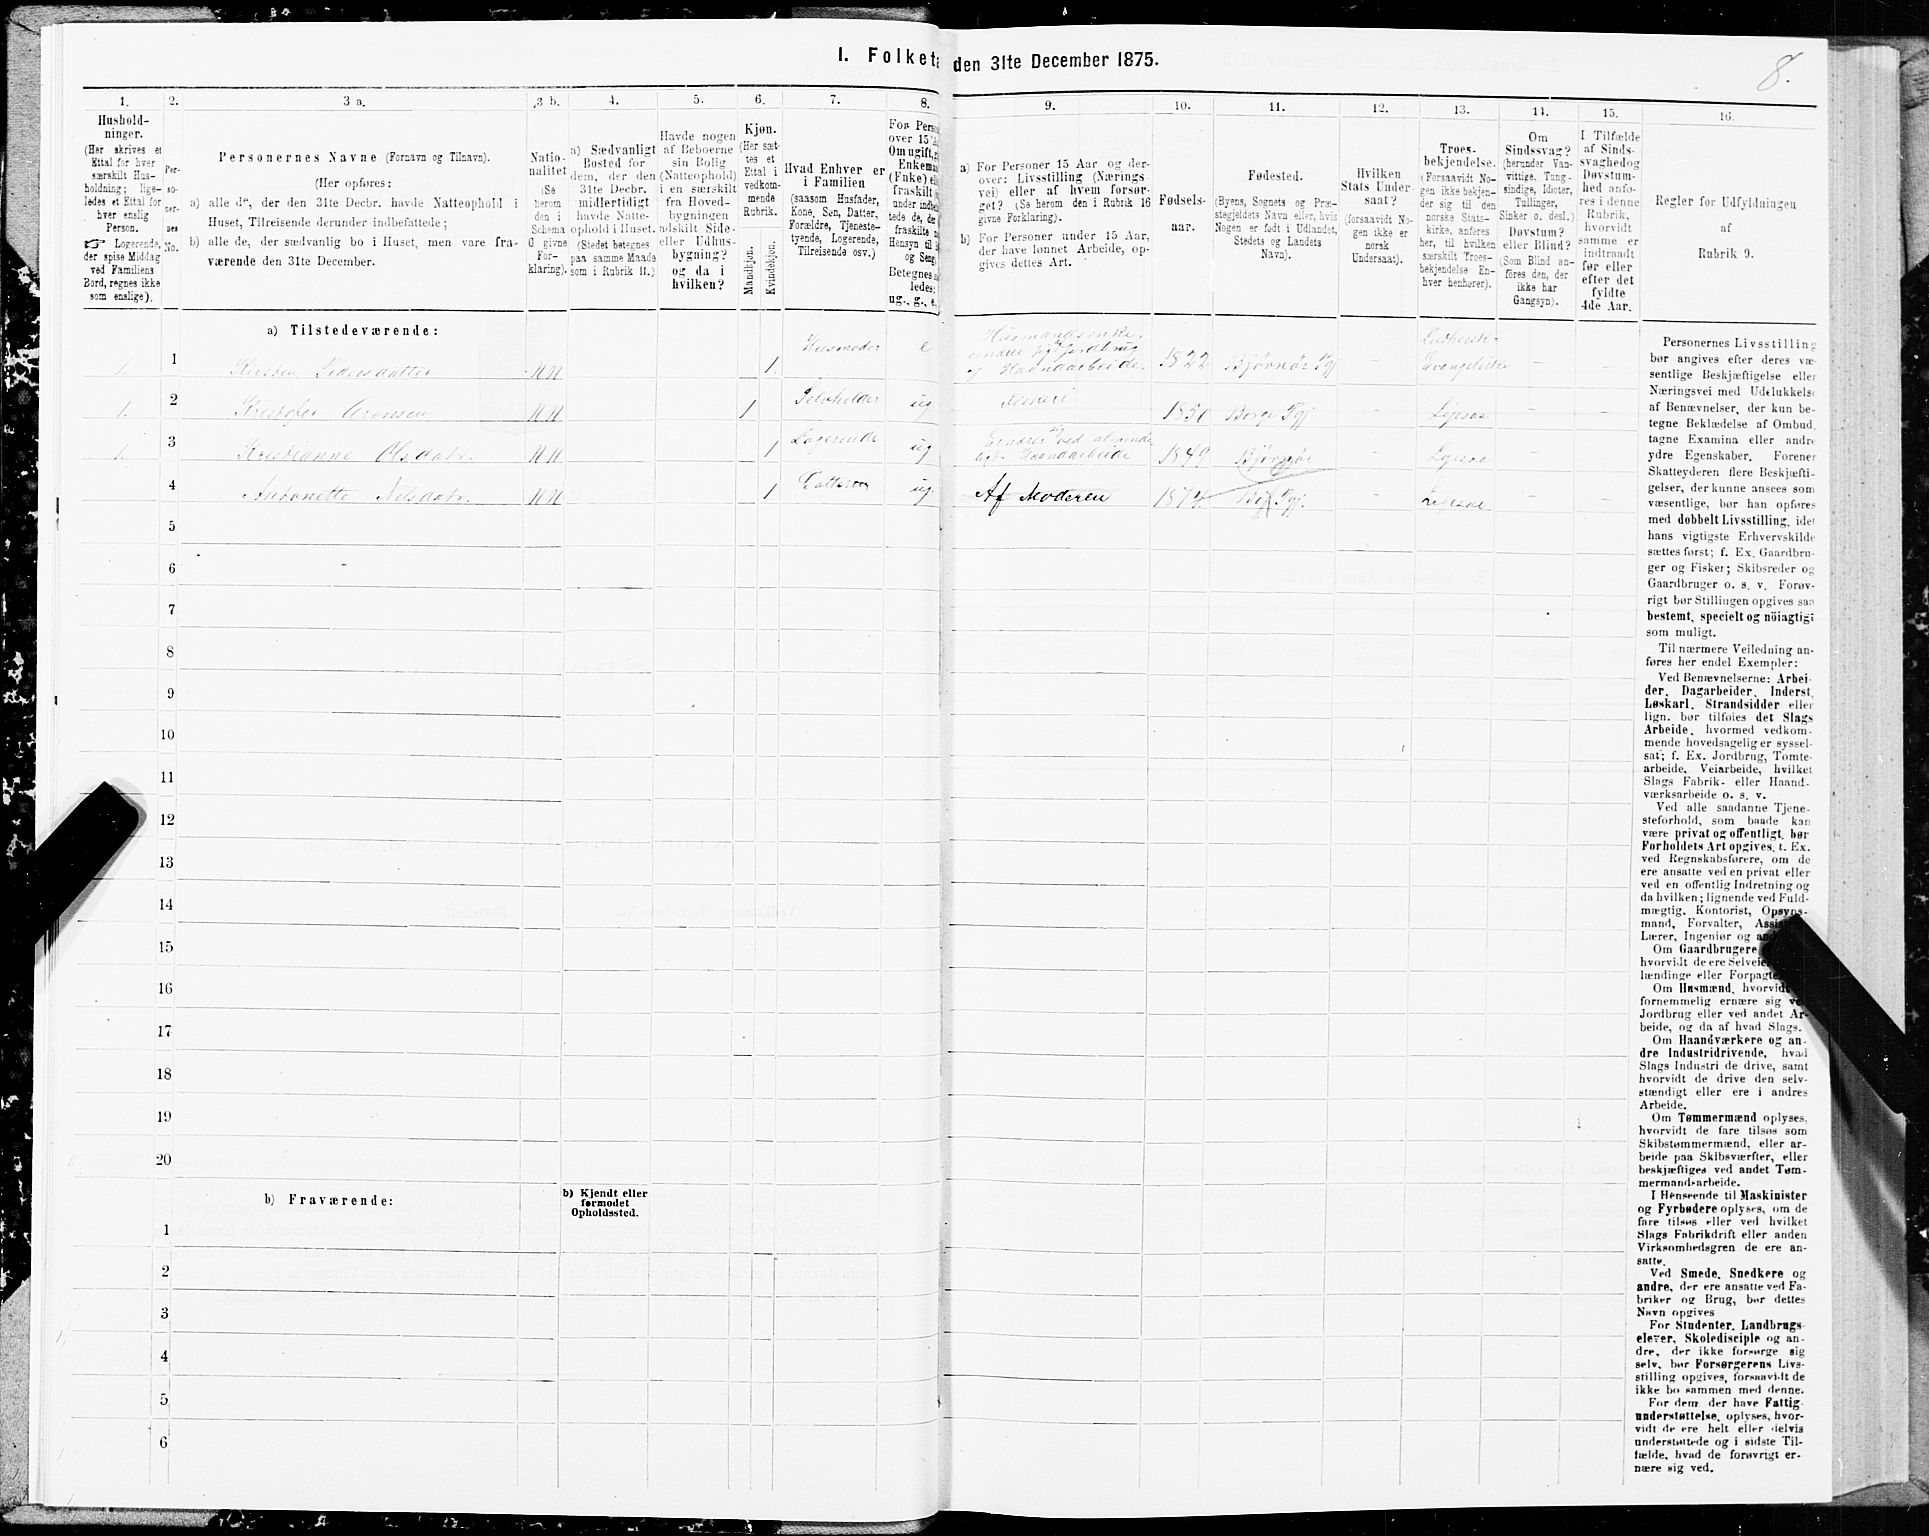 I. Folketæ
den 31te December 1875.
8.
1.
Hushold-
ninger.
(Her skrives et
Ettal for hver
særskilt Hus-
holdning; lige-
ledes et Ettal for
hver enslig
Person.
☞ Logerende,
der spise Middag
ved Familiens
Bord, regnes ikke
som enslige).
2.
Per-
so-
ner-
nes
No.
3 a.
Personernes Navne (Fornavn og Tilnavn).
(Her opføres:
a) alle de, der den 31te Decbr. havde Natteophold i
Huset, Tilreisende derunder indbefattede;
b) alle de, der sædvanlig bo i Huset, men vare fra-
værende den 31te December.
3 b.
Natio-
nalitet
(Se
herom
den i
Schema
O givne
For-
klaring).
4.
a) Sædvanligt
Bosted for
dem, der den
31te Decbr.
midlertidigt
havde Natte-
ophold i Huset.
(Stedet betegnes
paa samme Maade
som i Rubrik 11.)
5.
Havde nogen
af Beboerne
sin Bolig
(Natteophold)
i en særskilt
fra Hoved-
bygningen
adskilt Side-
eller Udhus-
bygning?
og da i
hvilken?
6.
Kjøn.
(Her sæt-
tes et
Ettal i
vedkom-
mende
Rubrik.
Mandkjøn.
Kvindekjøn.
7.
Hvad Enhver er
i Familien
(saasom Husfader,
Kone, Søn, Datter,
Forældre, Tjeneste-
tyende, Logerende,
Tilreisende osv.)
8.
For Perso
over 15
Om ugift, g
Enkema
(Enke) el
fraskilt
under indbe
tede de, d
fraskilte
Hensyn til
og Seng
Betegnes
ledes:
ug., g., e.
9.
a) For Personer 15 Aar og der-
over: Livsstilling (Nærings-
vei) eller af hvem forsør-
get? (Se herom den i Rubrik 16
givne Forklaring).
b) For Personer under 15 Aar,
der have lønnet Arbeide, op-
gives dettes Art.
10.
Fødsels-
aar.
11.
Fødested.
(Byens, Sognets og Præ-
stegjeldets Navn eller, hvis
Nogen er født i Udlandet,
Stedets og Landets
Navn).
12.
Hvilken
Stats Under-
saat?
(forsaavidt No-
gen ikke er
norsk
Undersaat).
13.
Troes-
bekjendelse.
(Forsaavidt No-
gen ikke bekjen-
der sig til den
norske Stats-
kirke, anføres
her, til hvilken
særskilt Troes-
bekjendelse En-
hver henhører).
14.
Om
Sindssvag?
(herunder Van-
vittige, Tung-
sindige, Idioter,
Tullinger,
Sinker o. desl.)
Døvstum?
eller Blind?
(Som Blind an-
føres den, der
ikke har
Gangsyn).
15.
I Tilfælde
af Sinds-
svaghedog
Døvstum-
hed anfø-
res i denne
Rubrik,
hvorvidt
samme er
indtraadt
før eller
efter det
fyldte
4de Aar.
16.
Regler for Udfyldningen
af
Rubrik 9.
a) Tilstedeværende:
1. 1 Kirsten Pedersdatter NN 1. Husmoder e Husmandsenke, ernærer sig ved Jordbrug og Haandarbeide. 1822 Bjørnør Pgj – Luthersk-Evangeliske –
1. 2 Kristofer Aronsen NN 1 Selvholder ug Fiskeri 1850 Borge Pgj – Ligesaa –
1. 3 Kristianne Olsdatr. NN 1 Logerende ug Ernærer sig ved almindeligt Haandarbeide 1849 Bjørnør – Ligesaa –
4 Antonette Nilsdatr. NN 1 Datteren ug. Af Moderen 1874. Pgj. – Ligesaa –
5
6
7
8
9
10
11
12
13
14
15
16
17
18
19
20
b) Fraværende:
b) Kjendt eller
formodet
Opholdssted.
1
2
3
4
5
6
Personernes Livsstilling
bør angives efter deres væ-
sentlige Beskjæftigelse eller
Næringsvei med Udelukkelse
af Benævnelser, der kun be-
tegne Beklædelse af Ombud,
tagne Examina eller andre
ydre Egenskaber. Forener
Skatteyderen flere Beskjæfti-
gelser, der kunne ansees som
væsentlige, bør han opføres
med dobbelt Livsstilling, idet
hans vigtigste Erhvervskilde
sættes først; f. Ex. Gaardbru-
ger og Fisker; Skibsreder og
Gaardbruger o. s. v. Forøv-
rigt bør Stillingen opgives saa
bestemt, specielt og nöiagtigt
som muligt.
Til nærmere Veiledning an-
føres her endel Exempler:
Ved Benævnelserne: Arbei-
der, Dagarbeider, Inderst,
Løskarl, Strandsidder eller
lign. bør tilføies det Slags
Arbeide, hvormed vedkom-
mende hovedsagelig er syssel-
sat; f. Ex. Jordbrug, Tomte-
arbeide, Veiarbeide, hvilket
Slags Fabrik- eller Haand-
værksarbeide o. s. v.
Ved alle saadanne Tjene-
steforhold, som baade kan
være privat og offentligt, bør
Forholdets Art opgives, t. Ex.
ved Regnskabsførere, om de
ere ansatte ved en privat eller
ved en offentlig Indretning og
da hvilken; lignende ved Fuld-
mægtig, Kontorist, Opsyns-
mand, Forvalter, Assis
Lærer, Ingeniør og and
Om Gaardbrugere
hvorvidt de ere Selveie
lændinge eller Forpagte
Om Husmænd, hvorvidt
fornemmelig ernære sig ved
Jordbrug eller ved andet Ar-
beide, og da af hvad Slags.
Om Haandværkere og an-
dre Industridrivende, hvad
Slags Industri de drive, samt
hvorvidt de drive den selv-
stændigt eller ere i andres
Arbeide.
Om Tømmermænd oplyses,
hvorvidt de fare tilsøs som
Skibstømmermænd, eller ar-
beide paa Skibsværfter, eller
beskjæftiges ved andet Tøm-
mermandsarbeide.
I Henseende til Maskinister
og Fyrbødere oplyses, om de
fare tilsøs eller ved hvilket
Slags Fabrikdrift eller anden
Virksomhedsgren de ere an-
satte.
Ved Smede, Snedkere og
andre, der ere ansatte ved Fa-
briker og Brug, bør dettes
Navn opgives
For Studenter, Landbrugs-
elever, Skoledisciple og an-
dre, der ikke forsørge sig
selv, bør Forsørgerens Livs-
stilling opgives, forsaavidt de
ikke bo sammen med denne.
For dem der have Fattig-
understøttelse, oplyses, hvor-
vidt de ere helt eller delvis
understøttede og i sidste Til-
fælde, hvad de forøvrigt er-
nære sig ved.